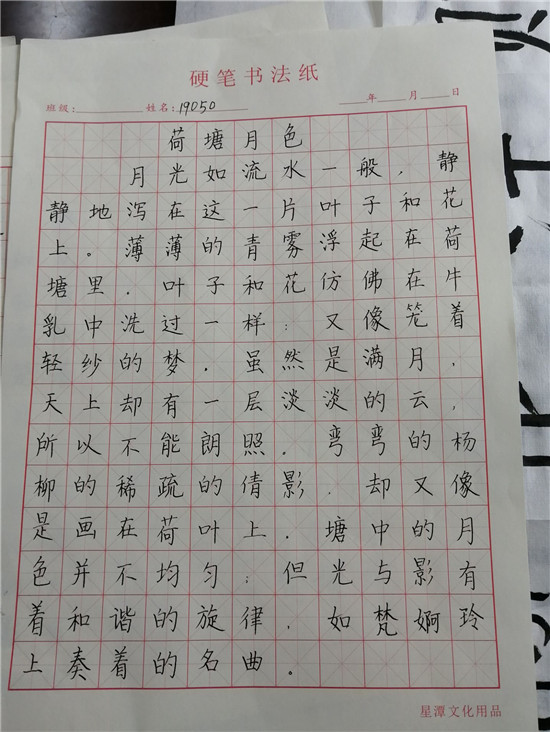 硬笔书法纸
班级: 姓名:19050 年 月 日
荷塘月色
月光如流水一般，静
静地泻在这一片叶子和花
上。薄薄的青雾浮起在荷
塘里．叶子和花仿佛在牛
乳中洗过一样；又像笼着
轻纱的梦．虽然是满月，
天上却有一层淡淡的云，
所以不能朗照．弯弯的杨
柳的稀疏的倩影，却又像
是画在荷叶上．塘中的月
色并不均匀；但光与影有
着和谐的旋律，如梵婀玲
上奏着的名曲。
星潭文化用品